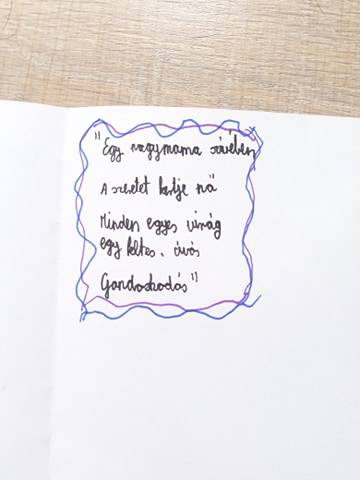 "Egy nagymama szívében
A szeretet kertje nő
Minden egyes virág
egy féltés, óvó
Gondoskodás"